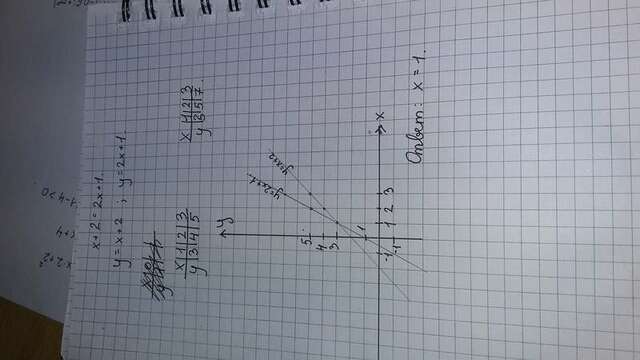 x+2=2x+1.
y=x+2 ; y=2x+1.
x|1|2|3
y|3|4|5
x|1|2|3
y|3|5|7
y
5
4
3
1
-1
-1
1
2
3
x
y=x+2.
y=2x+1.
Ответ: x=1.